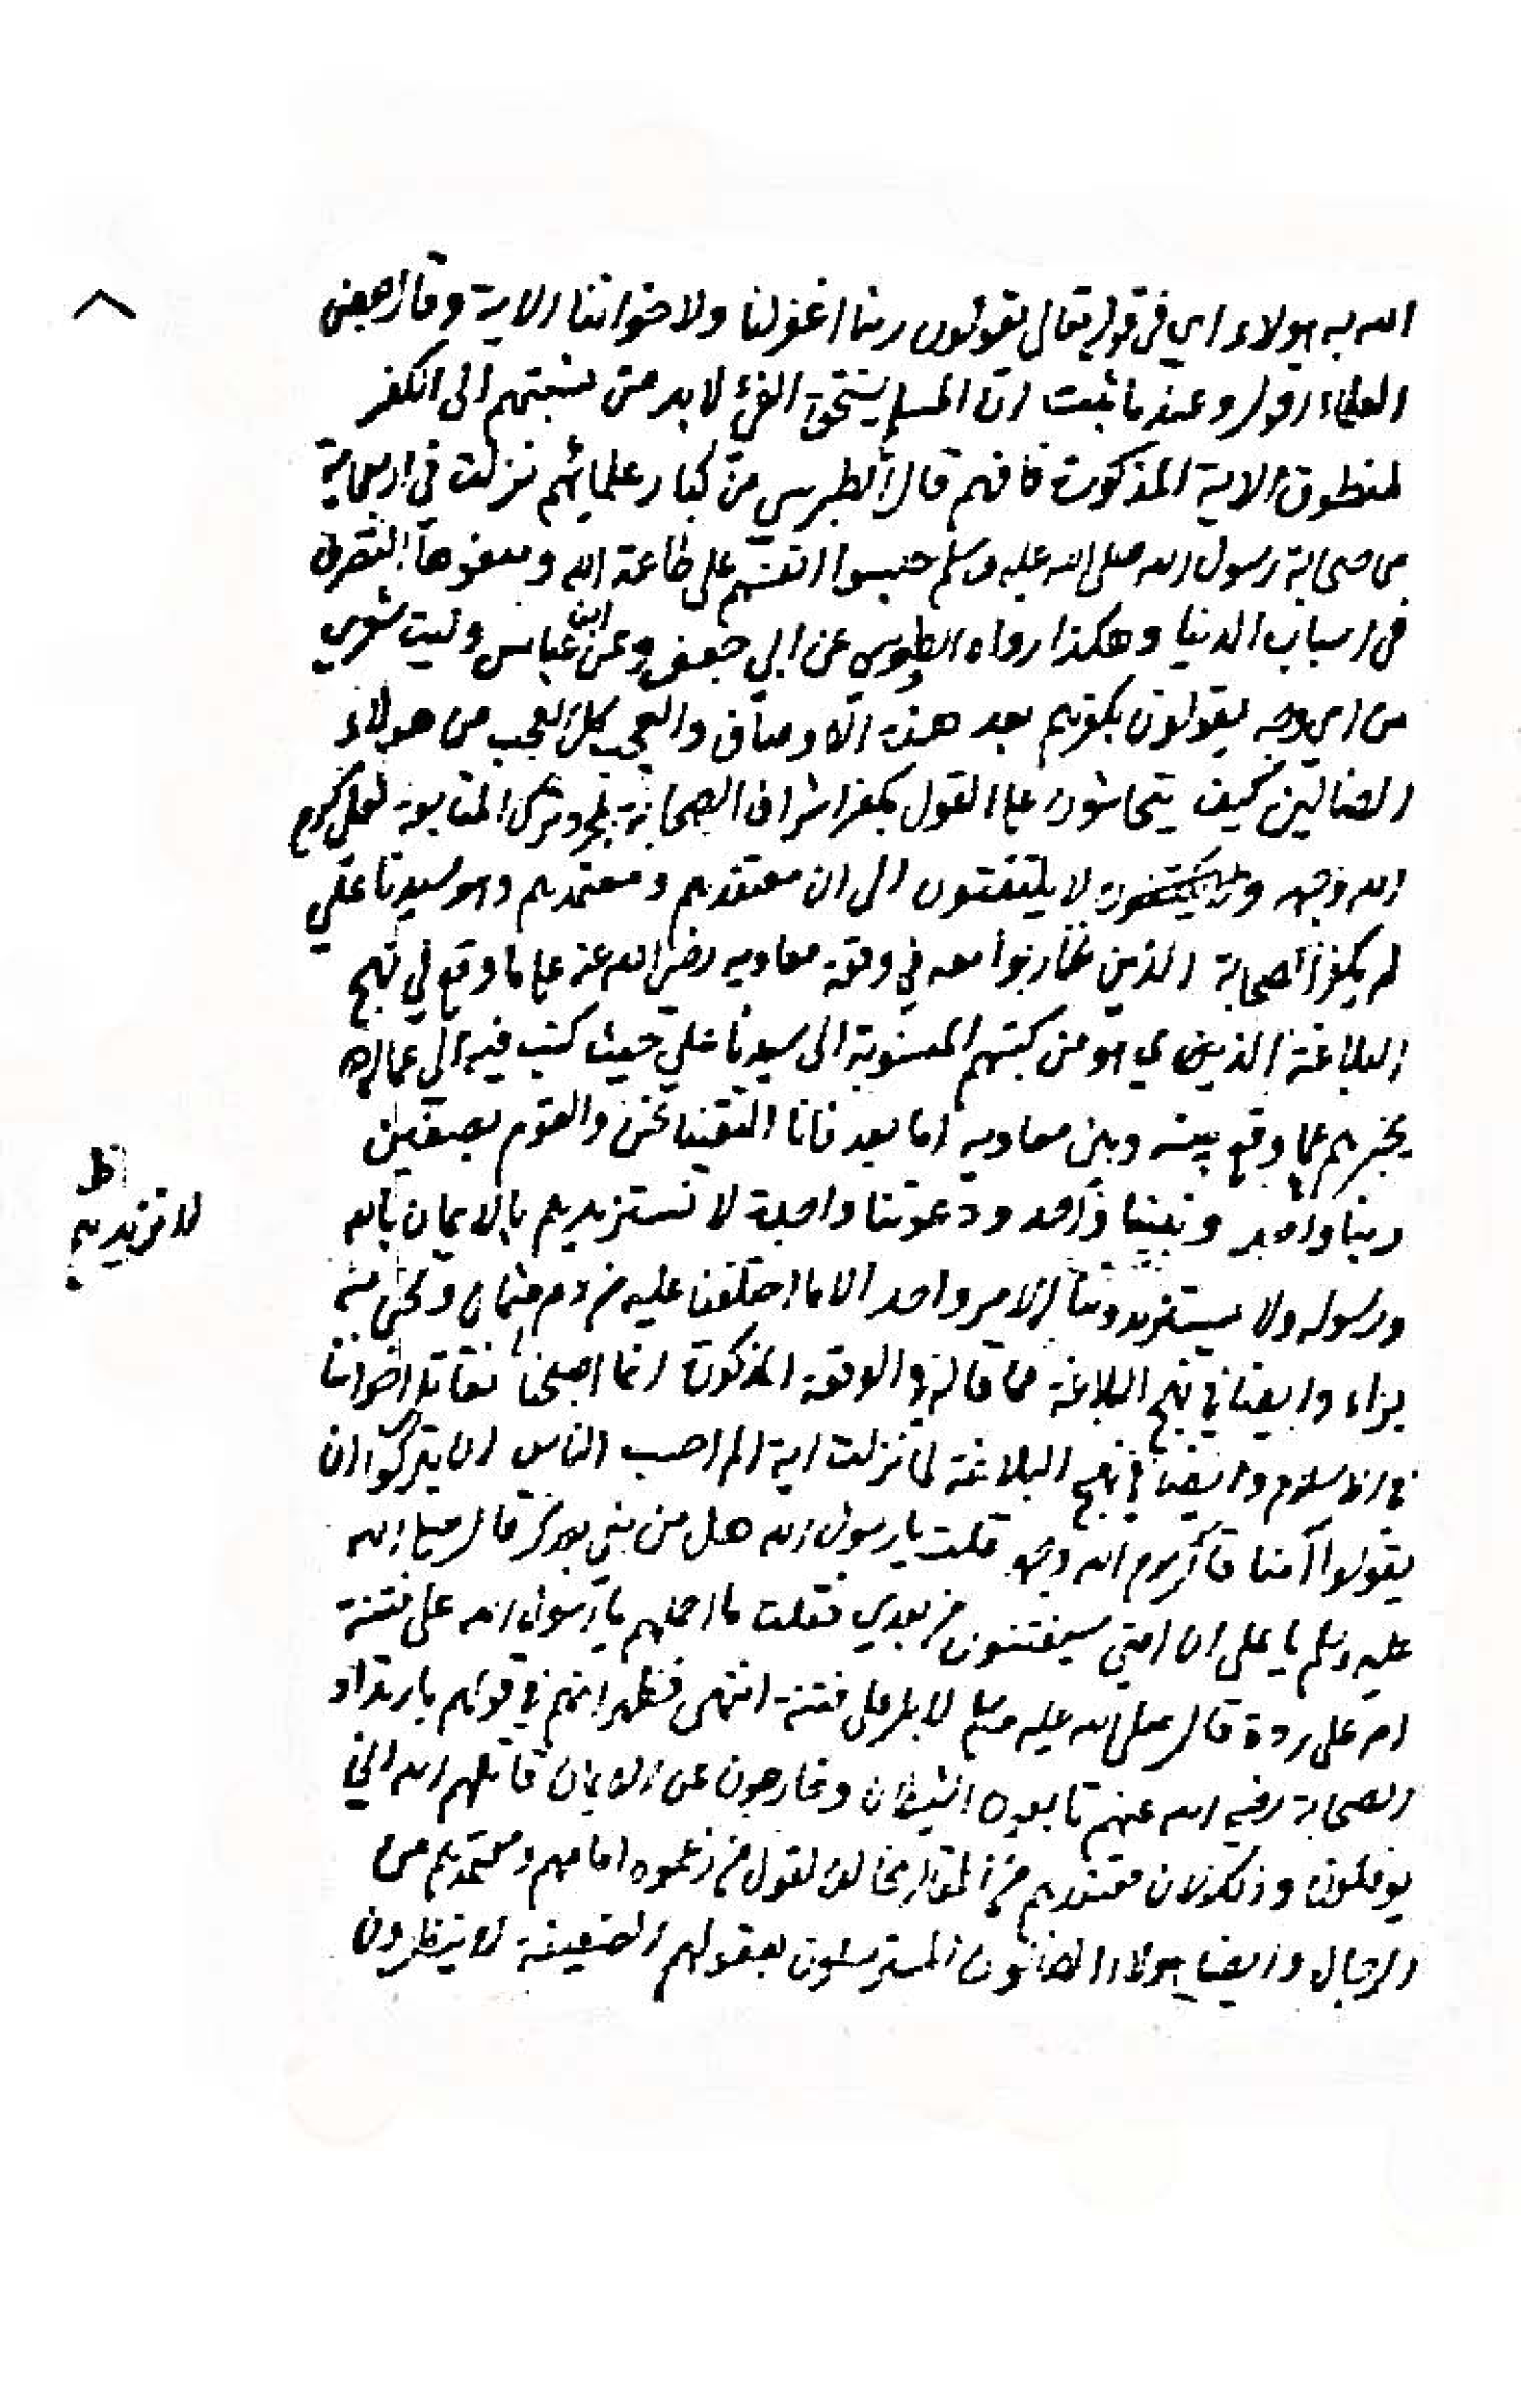 ٨
الله به هولاء اي في قوله تعالى يقولون ربنا اغفر لنا ولاخواننا الاية وقال بعض
العلماء اقول وعندما ثبت ان المسلم يستحق الفئ لابد من نسبتهم الى الكفر
لمنطوق الاية المذكورة فافهم قال الطبرسي من كبار علمائهم نزلت في اربعماية
من صحابة رسول الله صلى الله عليه وسلم حبسوا انفسهم على طاعة الله ومنعوها التصرف
في اسباب الدنيا وهكذا رواه الطوسي عن ابي جعفر وعن ابن عباس وليت شعري
من اي وجه يقولون بكفرهم بعد هذه الاوصاف والعجب كل العجب من هولاء
الضالين كيف يتحاشون على القول بكفر اشراف الصحابة بمجرد ترك المتابعة لعلي كرم
الله وجهه و لا يلتفتون الى ان معتقدهم ومعتمدهم وهو سيدنا علي
لم يكفر الصحابة الذين تحاربوا معه في وقعة معاويه رضي الله عنه على ما وقع في نهج
البلاغة الذين ي هو من كتبهم المنسوبة الى سيدنا علي حيث كتب فيه الى عماله
يخبرهم عما وقع بينه وبين معاويه اما بعد فانا التقينا نحن والقوم بصفين
ربنا واحد ونبينا واحد ودعوتنا واحدة لا نستزيدهم بالايمان بالله
ط
لا نزيدهم
ورسوله ولا يستزيدوننا الامر واحد الا ما اختلفنا عليه من دم عثمان ونحن منه
براء وايضا في نهج البلاغة مما قاله في الوقعة المذكورة انما اصبحنا نقاتل اخواننا
في الاسلام وايضا في نهج البلاغة لما نزلت اية الم احسب الناس ان يتركوا ان
يقولوا آمنا قال كرم الله وجهه قلت يا رسول الله هل من شي بعدك قال صلى الله
عليه وسلم يا علي ان امتي سيفتنون من بعدي فقلت ما احملهم يا رسول الله على فتنة
ام على ردة قال صلى الله عليه وسلم لا بل على فتنة انتهى فظهر انهم في قولهم بارتداد
الصحابة رضي الله عنهم تابعوه الشيطان وخارجون عن الايمان قاتلهم الله انى
يوفكون وذلك لان معتقدهم من المقال مخالف لقول من زعموه امامهم ومعتمدهم من
الرجال وايضا هولاء الضالون المسترسلون بعقولهم الضعيفة لا ينظرون